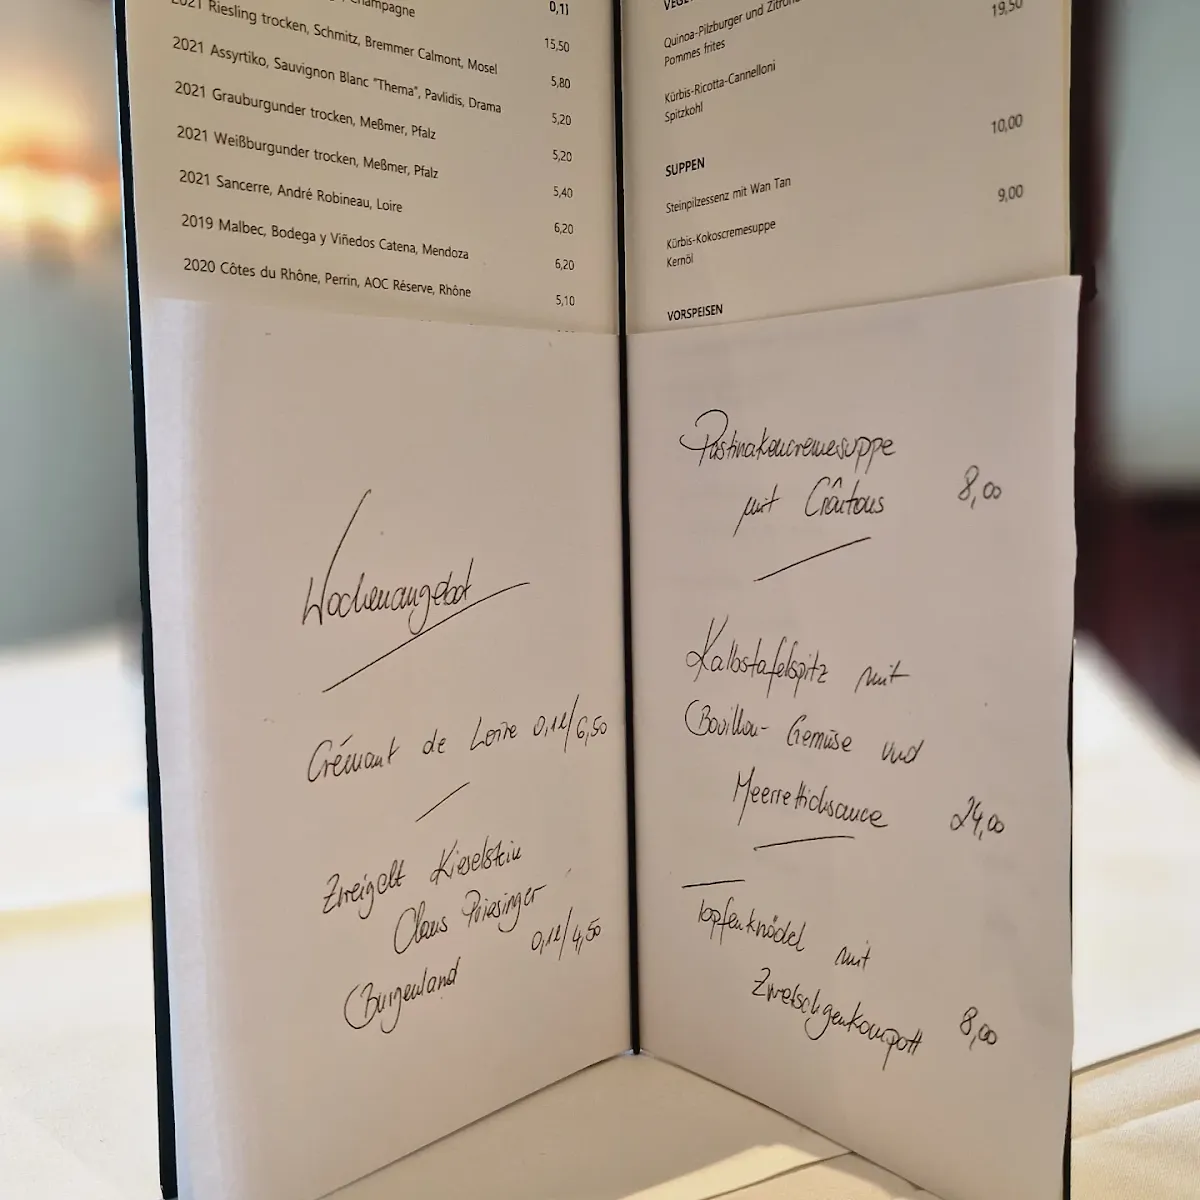 Champagne
0,1l
2021 Riesling trocken, Schmitz, Bremmer Calmont, Mosel
15,50
2021 Assyrtiko, Sauvignon Blanc "Thema", Pavlidis, Drama
5,80
2021 Grauburgunder trocken, Meßmer, Pfalz
5,20
2021 Weißburgunder trocken, Meßmer, Pfalz
5,20
2021 Sancerre, André Robineau, Loire
5,40
2019 Malbec, Bodega y Viñedos Catena, Mendoza
6,20
2020 Côtes du Rhône, Perrin, AOC Réserve, Rhône
6,20
5,10
Wochenangebot
Crémant de Loire 0,1l/6,50
Zweigelt Kieselstein
Claus Preisinger
0,1l/4,50
Burgenland
Quinoa-Pilzburger und
19,50
Pommes frites
Kürbis-Ricotta-Cannelloni
Spitzkohl
SUPPEN
10,00
Steinpilzessenz mit Wan Tan
9,00
Kürbis-Kokoscremesuppe
Kernöl
VORSPEISEN
Pastinakencremesuppe
mit Crôutons 8,00
Kalbstafelspitz mit
Bouillon-Gemüse und
Meerrettichsauce 24,00
Topfenknödel mit
Zwetschgenkompott 8,00